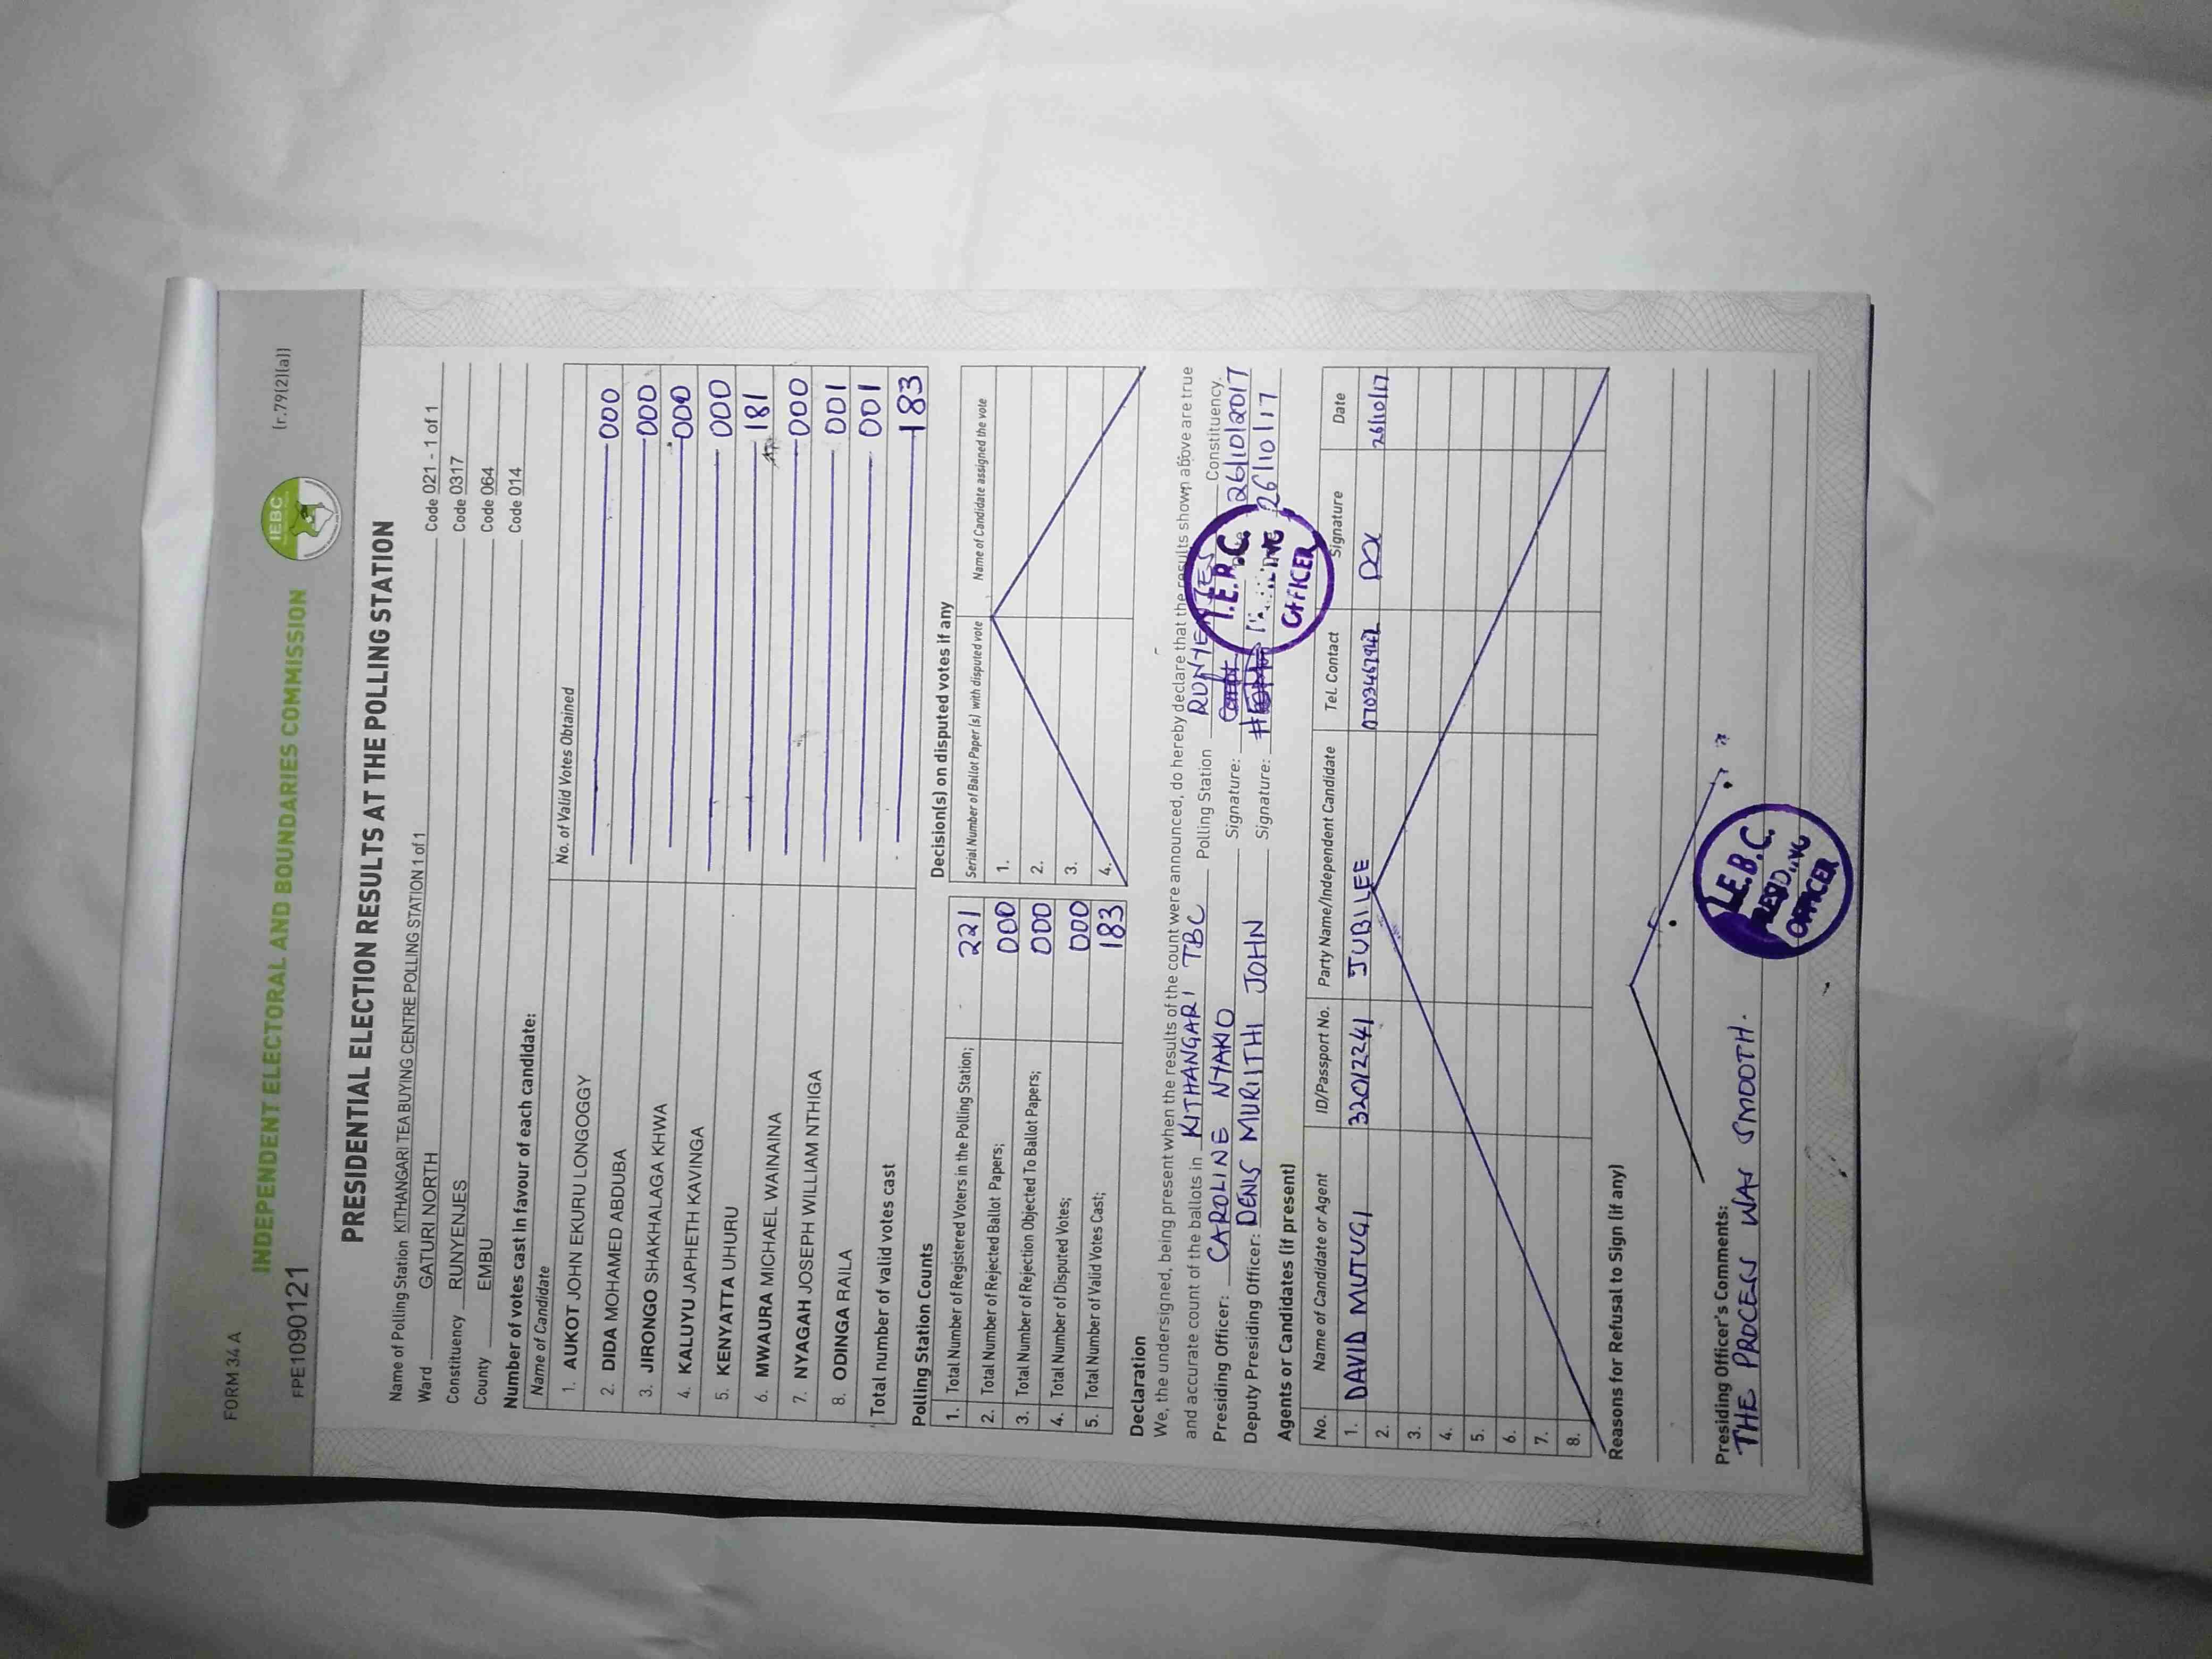 FORM 34 A
INDEPENDENT ELECTORAL AND BOUNDARIES COMMISSION
IEBC
FPE1090121
(r.79(2)(a))
PRESIDENTIAL ELECTION RESULTS AT THE POLLING STATION
Name of Polling Station KITHANGARI TEA BUYING CENTRE POLLING STATION 1 of 1 Code 021 - 1 of 1
Ward GATURI NORTH Code 0317
Constituency RUNYENJES Code 064
County EMBU Code 014
Number of votes cast in favour of each candidate:
Name of Candidate No. of Valid Votes Obtained
1. AUKOT JOHN EKURU LONGOGGY 000
2. DIDA MOHAMED ABDUBA 000
3. JIRONGO SHAKHALAGA KHWA 000
4. KALUYU JAPHETH KAVINGA 000
5. KENYATTA UHURU 181
6. MWAURA MICHAEL WAINAINA 000
7. NYAGAH JOSEPH WILLIAM NTHIGA 001
8. ODINGA RAILA 001
Total number of valid votes cast 183
Polling Station Counts
1. Total Number of Registered Voters in the Polling Station; 221
2. Total Number of Rejected Ballot Papers; 000
3. Total Number of Rejection Objected To Ballot Papers; 000
4. Total Number of Disputed Votes; 000
5. Total Number of Valid Votes Cast; 183
Decision(s) on disputed votes if any
Serial Number of Ballot Paper (s) with disputed vote Name of Candidate assigned the vote
1.
2.
3.
4.
Declaration
We, the undersigned, being present when the results of the count were announced, do hereby declare that the results shown above are true
and accurate count of the ballots in KITHANGARI TBC Polling Station RUNYENJES Constituency.
Presiding Officer: CAROLINE NYAKIO Signature: 26/10/2017
Deputy Presiding Officer: DENIS MURIITHI JOHN Signature: 26/10/17
I.E.B.C. PRESIDING OFFICER
Agents or Candidates (if present)
No. Name of Candidate or Agent ID/Passport No. Party Name/Independent Candidate Tel. Contact Signature Date
1. DAVID MUTUGI 32012241 JUBILEE 26/10/17
2.
3.
4.
5.
6.
7.
8.
Reasons for Refusal to Sign (if any)
Presiding Officer's Comments:
THE PROCESS WAS SMOOTH.
I.E.B.C. PRESIDING OFFICER